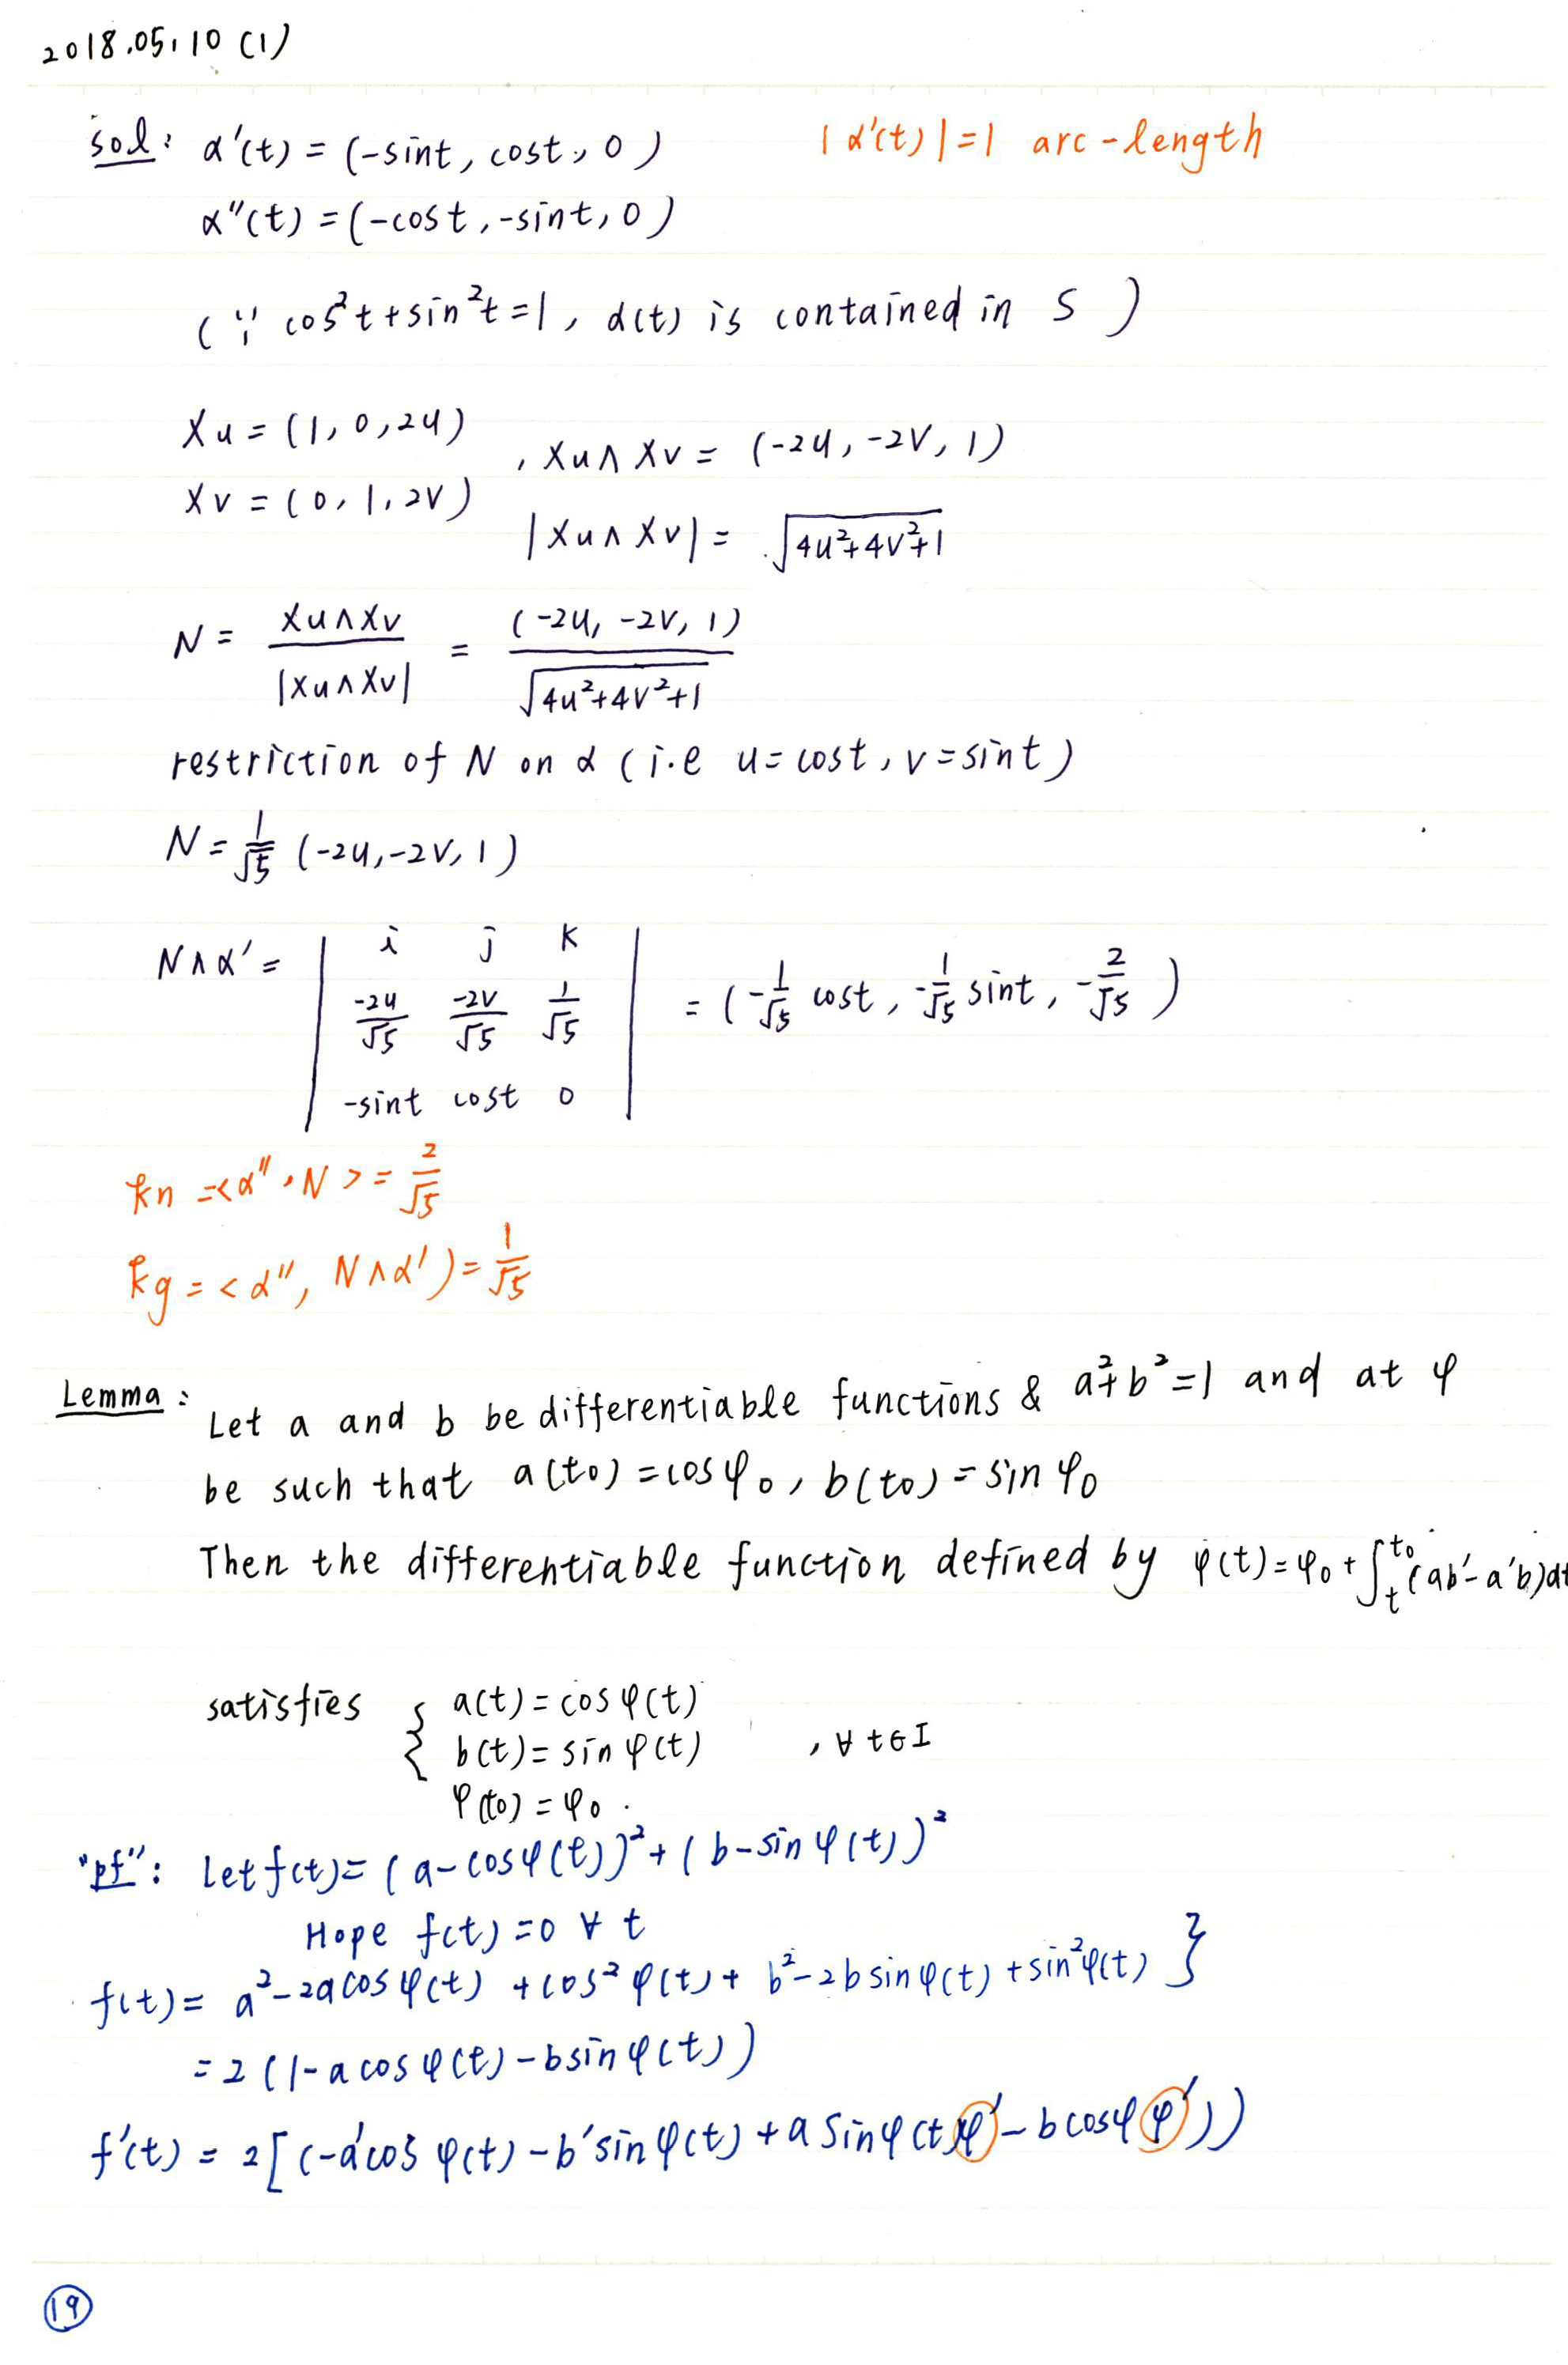 2018.05.10 (1)
sol: α'(t) = (-sint, cost, 0) |α'(t)|=1 arc-length
α''(t) = (-cost, -sint, 0)
(∵ cos²t+sin²t=1, α(t) is contained in S)
Xu = (1, 0, 2u)
, Xu∧Xv = (-2u, -2v, 1)
Xv = (0, 1, 2v)
|Xu∧Xv| = √(4u²+4v²+1)
N = Xu∧Xv / |Xu∧Xv| = (-2u, -2v, 1) / √(4u²+4v²+1)
restriction of N on α (i.e u=cost, v=sint)
N = 1/√5 (-2u, -2v, 1)
N∧α' = | i j k
-2u/√5 -2v/√5 1/√5 | = (-1/√5 cost, -1/√5 sint, -2/√5)
-sint cost 0
kn =<α'', N> = 2/√5
kg = <α'', N∧α') = 1/√5
Lemma: Let a and b be differentiable functions & a²+b²=1 and at φ
be such that a(t₀)=cosφ₀, b(t₀)=sinφ₀
Then the differentiable function defined by φ(t)=φ₀+∫ₜ^t₀(ab'-a'b)dt
satisfies { a(t)=cosφ(t)
b(t)=sinφ(t) , ∀ t∈I
φ(t₀)=φ₀.
"pf": Let f(t)=(a-cosφ(t))²+(b-sinφ(t))²
Hope f(t)=0 ∀ t
f(t)= a²-2acosφ(t)+cos²φ(t)+b²-2bsinφ(t)+sin²φ(t) }
=2(1-acosφ(t)-bsinφ(t))
f'(t) = 2[(-a'cosφ(t)-b'sinφ(t)+asinφ(t)φ'-bcosφφ'))
19